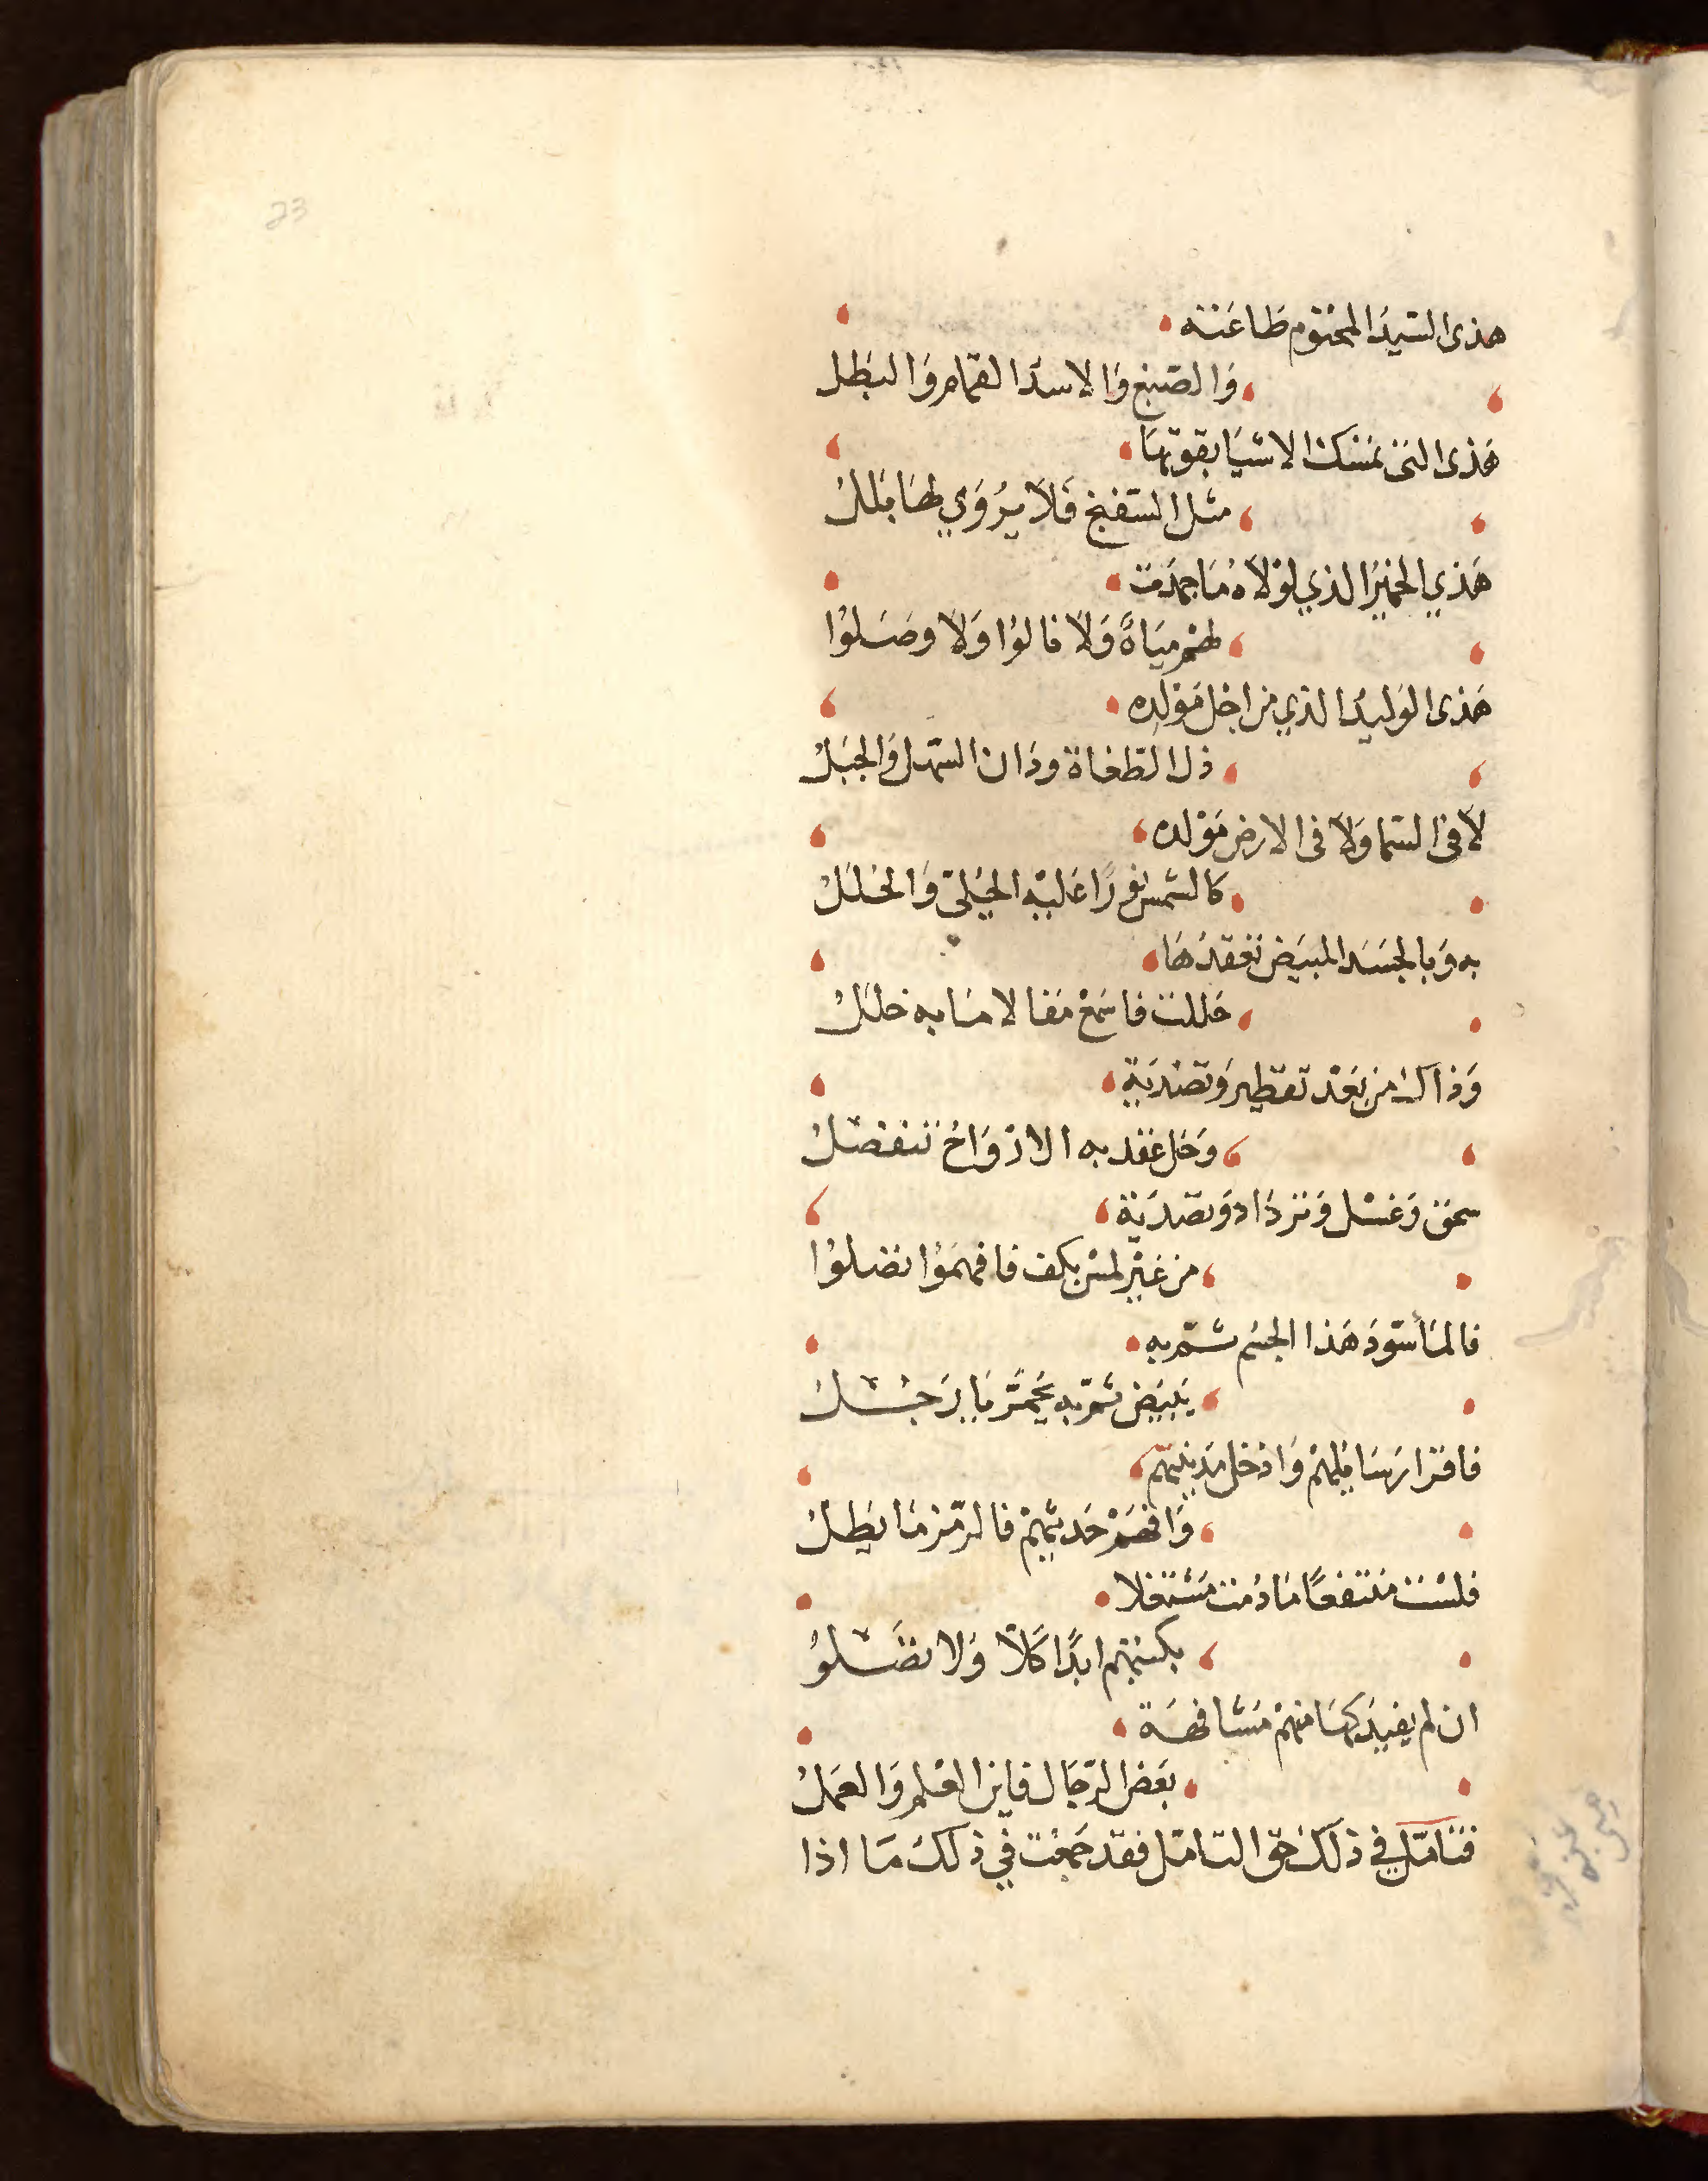 23
هذى السيد المختوم طاعته
والصبغ والاسد القمام والبطل
هذى التى تمسك الاشيا بقوتها
مثل السفنج فلا يروي لها بلل
هذي الخمير الذي لولاه ما جمدت
لهم مياه ولا قالوا ولا وصلوا
هذى الوليد الذي من اجل مولده
ذل الطغاة ودان السهل والجبل
لا فى السما ولا فى الارض مولده
كالشمس نورا عليه الحلى والحلل
به وبالجسد المبيض تعقدها
حللت فاسمع مقالا ما به خلل
وذاك من بعد تقطير وتصدية
وحل عقد به الارواح تنفصل
سحق وغسل وترداد وتصدية
من غير لمس بكف فافهموا تصلوا
فالما أسود هذا الجسم ثم به
يبيض ثم به يحمر يا رجل
فاقرا رسايلهم وادخل مدينتهم
وافهم حديثهم فالرمز ما يطل
فلست منتفعا ما دمت مشتغلا
بكتبهم ابدا كلا ولا تصلو
ان لم يفيدكها منهم مشافهة
بعض الرجال فاين العلم والعمل
فتامل في ذلك حق التامل فقد جمعت في ذلك ما اذا